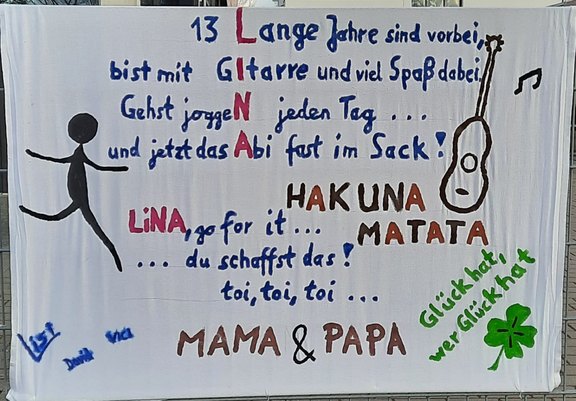 13 Lange Jahre sind vorbei,
bist mit GItarre und viel Spaß dabei,
Gehst joggeN jeden Tag ...
und jetzt das Abi fast im Sack!
HAKUNA
MATATA
LiNA, go for it ...
... du schaffst das!
toi, toi, toi ...
Glück hat,
wer Glück hat
MAMA & PAPA
David